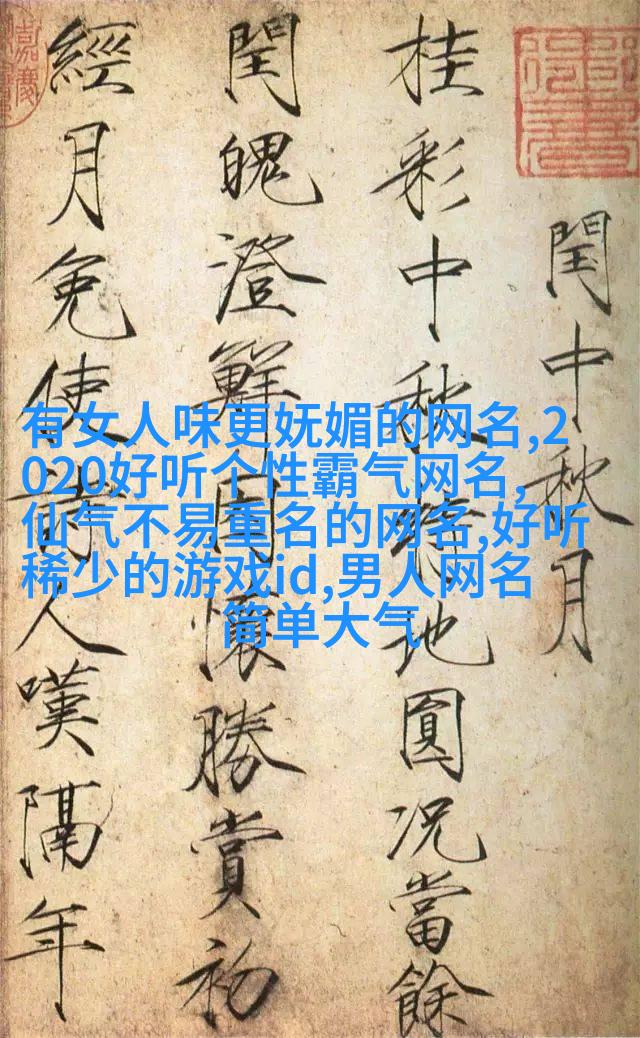 閏中秋月
桂彩中秋特地圓況當餘
閏魄澄鮮因懷勝賞初
經月免使詩人嘆隔年
有女人味更妩媚的网名,2
020好听个性霸气网名,
仙气不易重名的网名,好听
稀少的游戏id,男人网名
简单大气